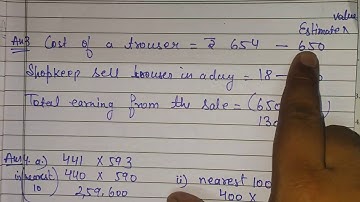 Estimated value
Ans3 Cost of a trouser = ₹ 654 — 650
Shopkeep sell trouser in a day = 18 —
Total earning from the sale = (650
130
Ans 4. a.) 441 × 593
i) nearest 10 440 × 590 ii) nearest 100
2,59,600 400 ×